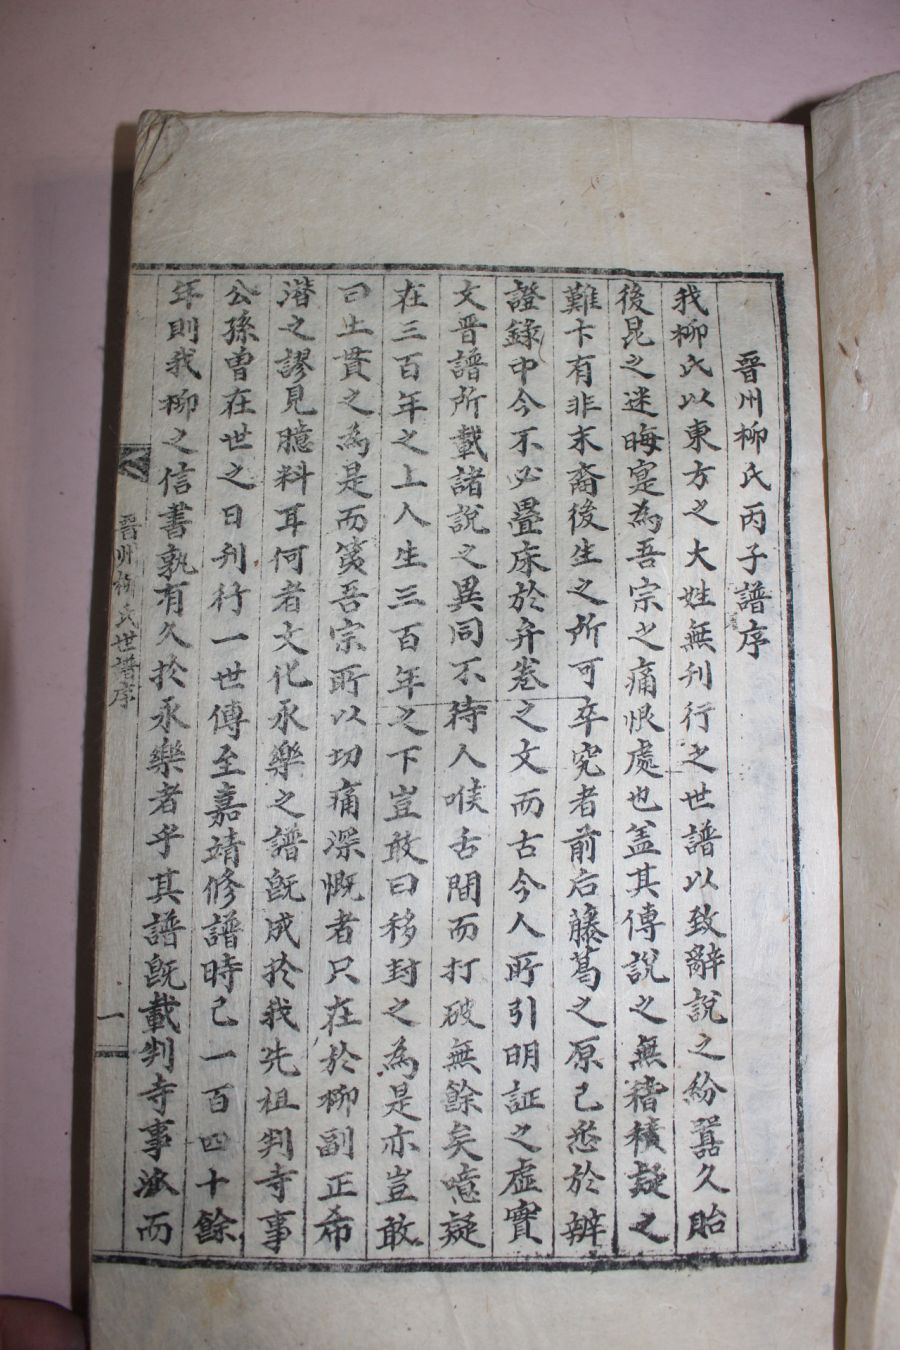 晋州柳氏丙子譜序
我柳氏以東方之大姓無刋行之世譜以致辭說之紛囂久貽
後昆之迷晦寔為吾宗之痛恨處也盖其傳說之無稽積疑之
難卞有非末裔後生之所可卒究者前后藤葛之原已悉於辨
證錄中今不必疊床於弁卷之文而古今人所引明証之虛實
文晋譜所載諸說之異同不待人喉舌間而打破無餘矣噫疑
在三百年之上人生三百年之下豈敢曰移封之為是亦豈敢
曰土貫之為是而筴吾宗所以切痛深慨者只在於柳副正希
潛之謬見臆料耳何者文化永樂之譜旣成於我先祖判寺事
公孫曽在世之日刋行一世傳至嘉靖修譜時已一百四十餘
年則我柳之信書孰有久於永樂者乎其譜旣載判寺事派而
晋州柳氏世譜序
一